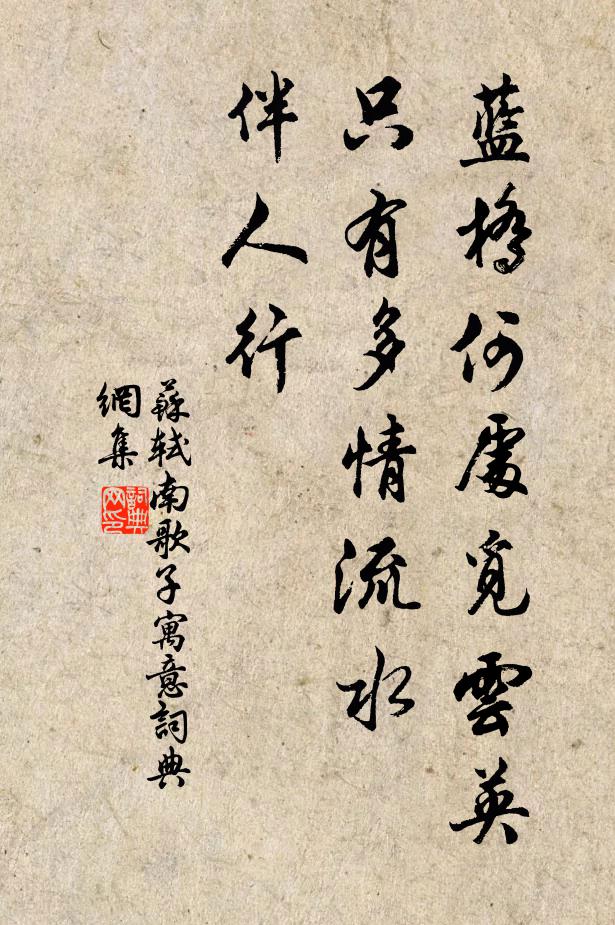 藍橋何處覓雲英
只有多情流水
伴人行
蘇軾南歌子寓意詞典
網集
詞典
网印